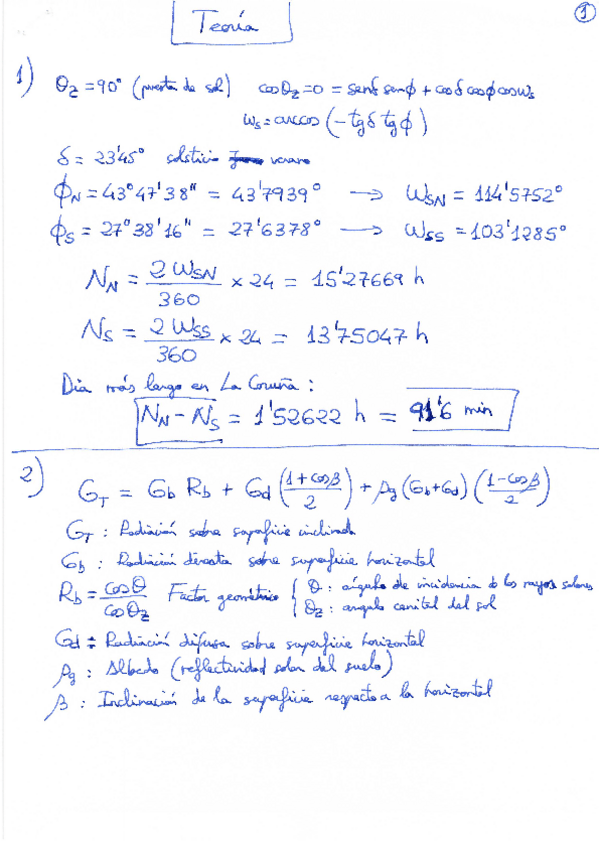 Teoría
1
1) θz = 90° (puesta de sol) cosθz = 0 = senδ senϕ + cosδ cosϕ cosωs
ωs = arccos (-tgδ tgϕ)
δ = 23'45° solsticio verano
ϕN = 43° 47' 38" = 43'7939° → ωSN = 114'5752°
ϕS = 27° 38' 16" = 27'6378° → ωSS = 103'1285°
NN = 2ωSN/360 × 24 = 15'27669 h
NS = 2ωSS/360 × 24 = 13'75047 h
Dia más largo en La Coruña :
NN - NS = 1'52622 h = 91'6 min
2) GT = Gb Rb + Gd (1+cosβ/2) + ρg (Gb+Gd) (1-cosβ/2)
GT : Radiación sobre superficie inclinada
Gb : Radiación directa sobre superficie horizontal
Rb = cosθ/cosθz Factor geométrico { θ : ángulo de incidencia de los rayos solares
θz : angulo cenital del sol
Gd : Radiación difusa sobre superficie horizontal
ρg : Albedo (reflectividad solar del suelo)
β : Inclinación de la superficie respecto a la horizontal